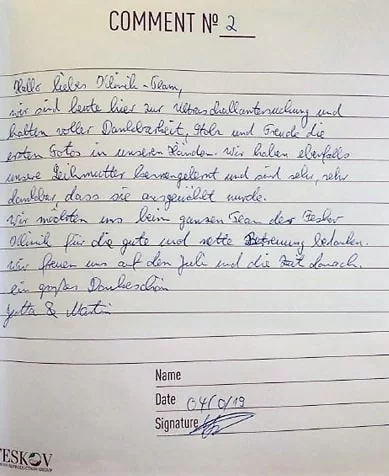 COMMENT № 2
Hallo liebes Klinik-Team,
wir sind heute hier zur Ultraschalluntersuchung und
halten voller Dankbarkeit, Stolz und Freude die
ersten Fotos in unseren Händen. Wir haben ebenfalls
unsere Leihmutter kennengelernt und sind sehr, sehr
dankbar, dass sie ausgewählt wurde.
Wir möchten uns beim ganzen Team der Feskov
Klinik für die gute und nette Betreuung bedanken.
Wir freuen uns auf den Juli und die Zeit danach.
ein großes Dankeschön
Jutta & Martin
Name
Date 04/0/19
Signature
FESKOV
REPRODUCTION GROUP